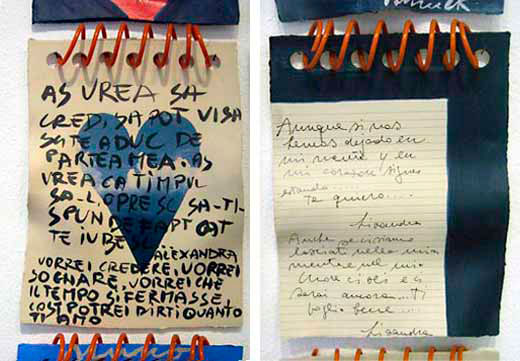 AS VREA SA
CRED, SA POT VISA
SA TE ADUC DE
PARTEA MEA. AS
VREA CA TIMPUL
SA-L OPRESC SA-TI-
SPUN DE FAPT CAT
TE IUBESC
ALEXANDRA
VORREI CREDERE, VORREI
SOGNARE, VORREI CHE
IL TEMPO SI FERMASSE
COSI POTREI DIRTI QUANTO
TI AMO
Aunque si nos
hemos dejado en
mi mente y en
mi corazon sigues
estando.....
te quiero....
Lisandra
Anche se ci siamo
lasciati nella mia
mente e nel mio
cuore ci sei e ci
sarai ancora... Ti
voglio bene...
Lisandra